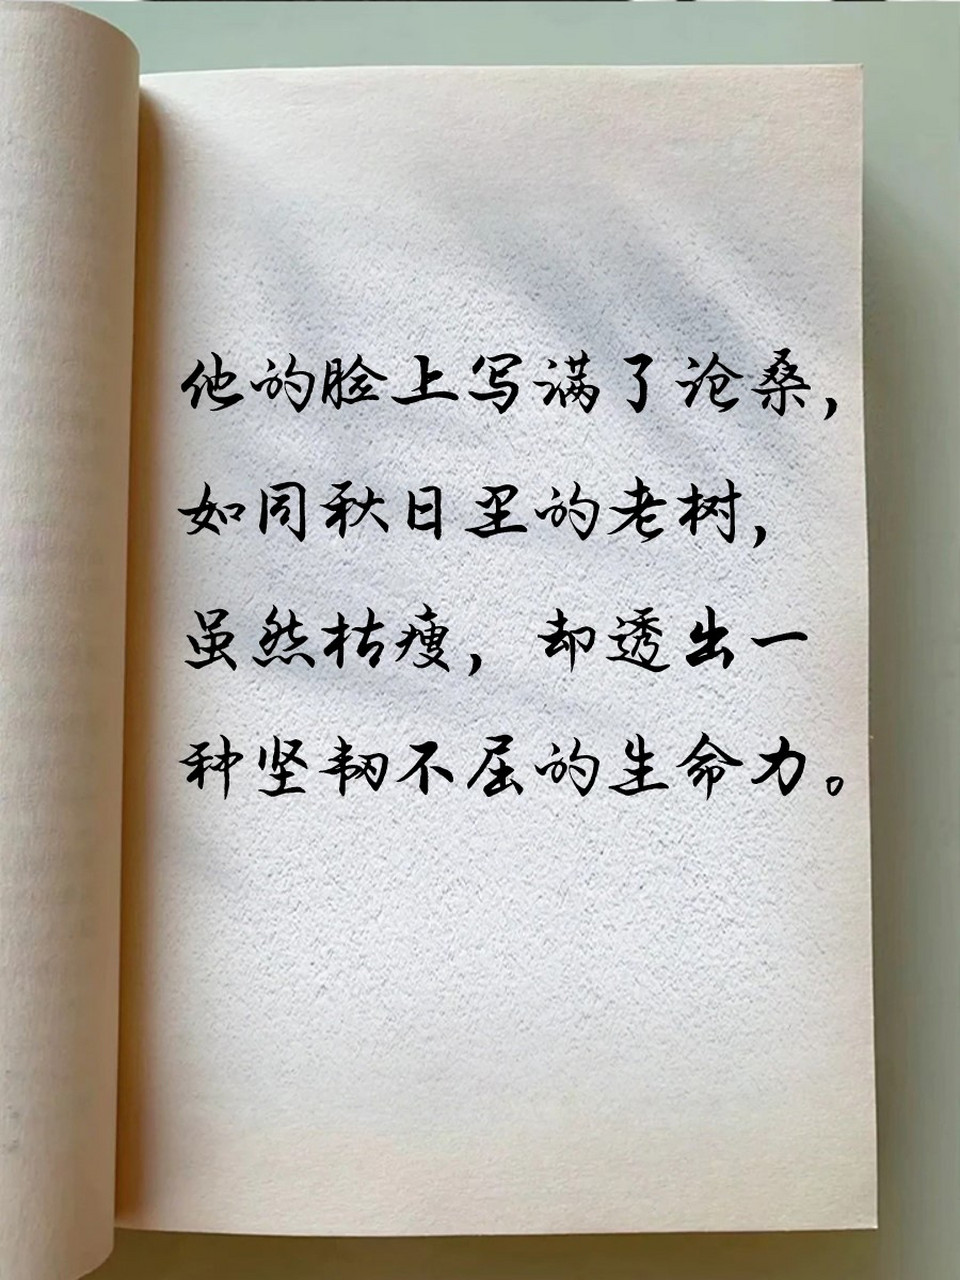 他的脸上写满了沧桑，
如同秋日里的老树，
虽然枯瘦，却透出一
种坚韧不屈的生命力。